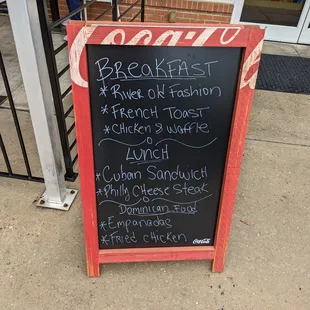 Coca-Cola
BREAKFAST
* River Old Fashion
* FRENCH TOAST
* CHICKEN & WAFFLE
LUNCH
* CUBAN SANDWICH
* PHILLY CHEESE STEAK
DOMINICAN FOOD
* EMPANADAS
* FRIED CHICKEN
Coca-Cola